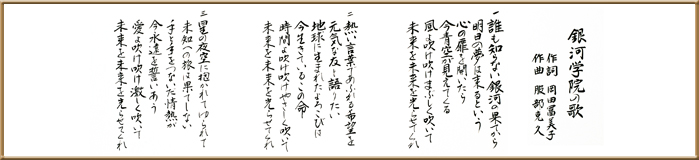 銀河学院の歌
作詞 岡田冨美子
作曲 服部克久
一 誰も知らない銀河の果てから
明日の夢は来るという
心の扉を開いたら
今青空が見えてくる
風よ吹け吹けまぶしく吹いて
未来を未来を光らせてくれ
二 熱い言葉であふれる希望を
元気な友と語りたい
地球に生まれたよろこびは
今生きているこの命
時間よ吹け吹けやさしく吹いて
未来を未来を光らせてくれ
三 星の夜空に抱かれてゆられて
未知への旅は果てしない
手と手をつないだ情熱が
今永遠を誓いあう
愛よ吹け吹け激しく吹いて
未来を未来を光らせてくれ